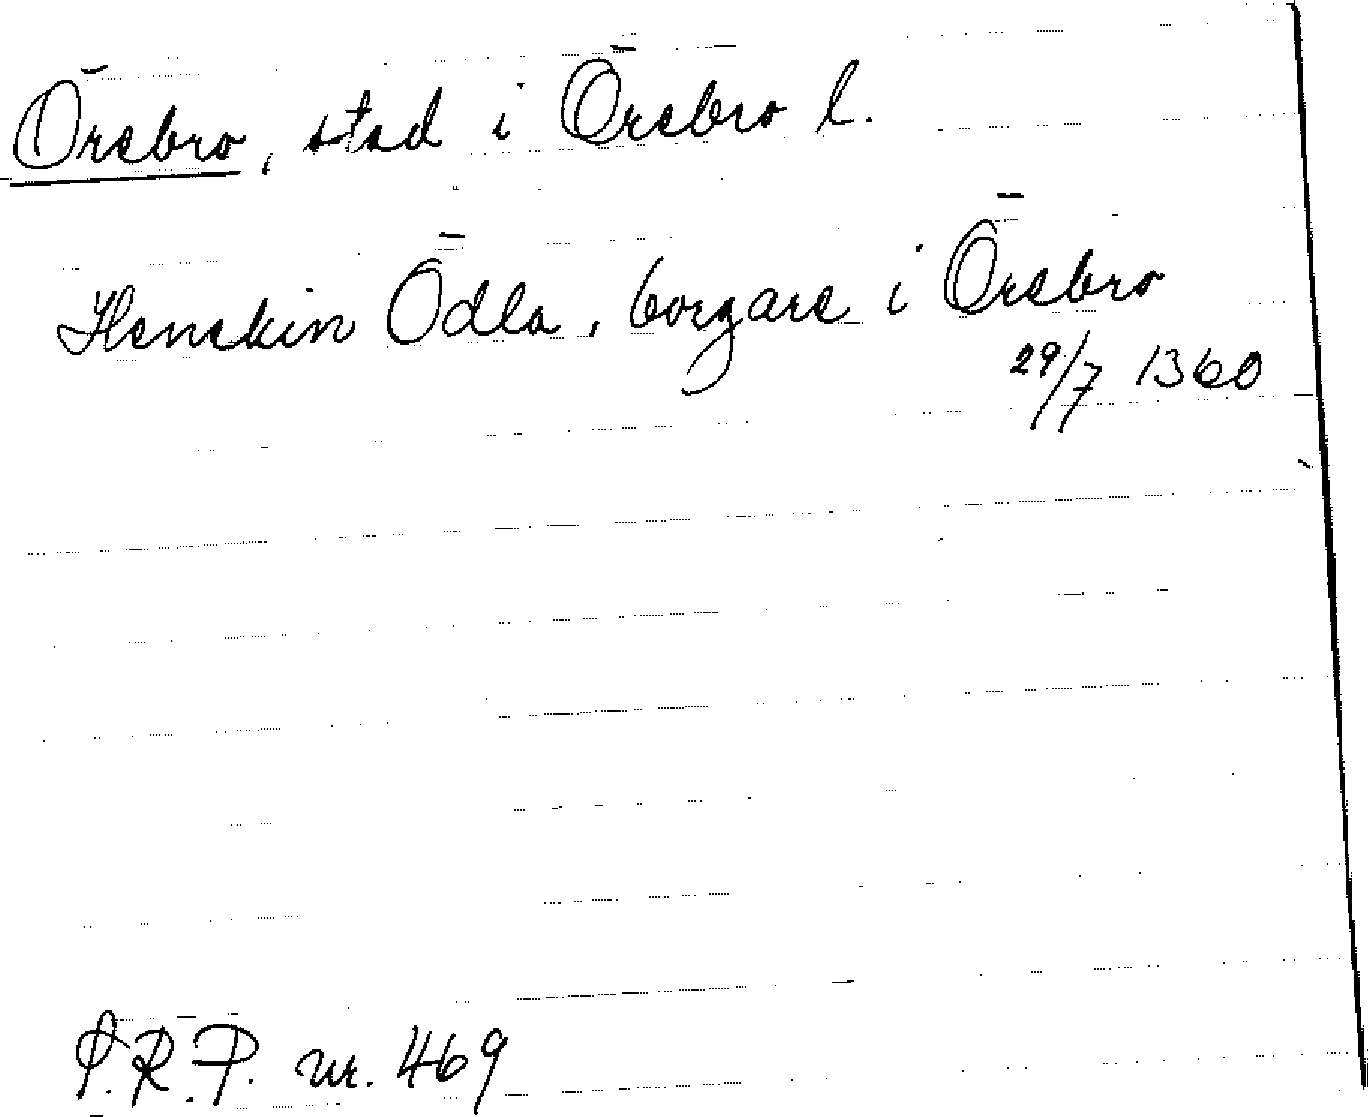 Örebro, stad i Örebro l.
Henekin Ödla, borgare i Örebro
29/7 1360
S.R.P. nr. 469